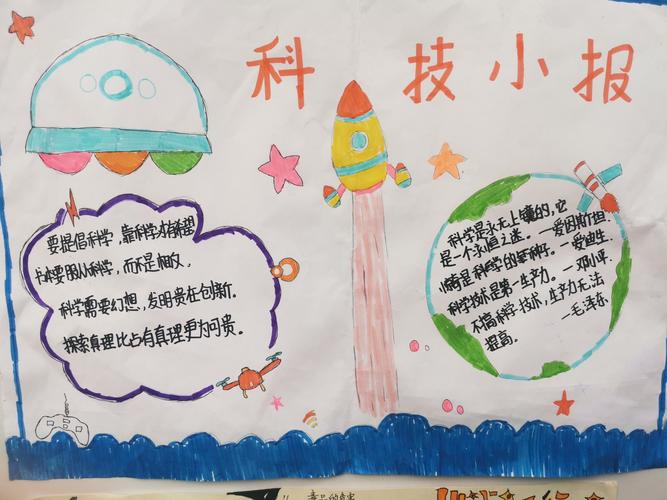 科技小报
要提倡科学,靠科学才有希望
要服从科学,而不是相反.
科学需要幻想,发明贵在创新.
探索真理比占有真理更为可贵。
科学是永无上镜的,它
是一个永恒之迷。—爱因斯坦.
是科学的种子。—爱迪生.
科学技术是第一生产力。—邓小平.
不搞科学技术,生产力无法
提高。 —毛泽东